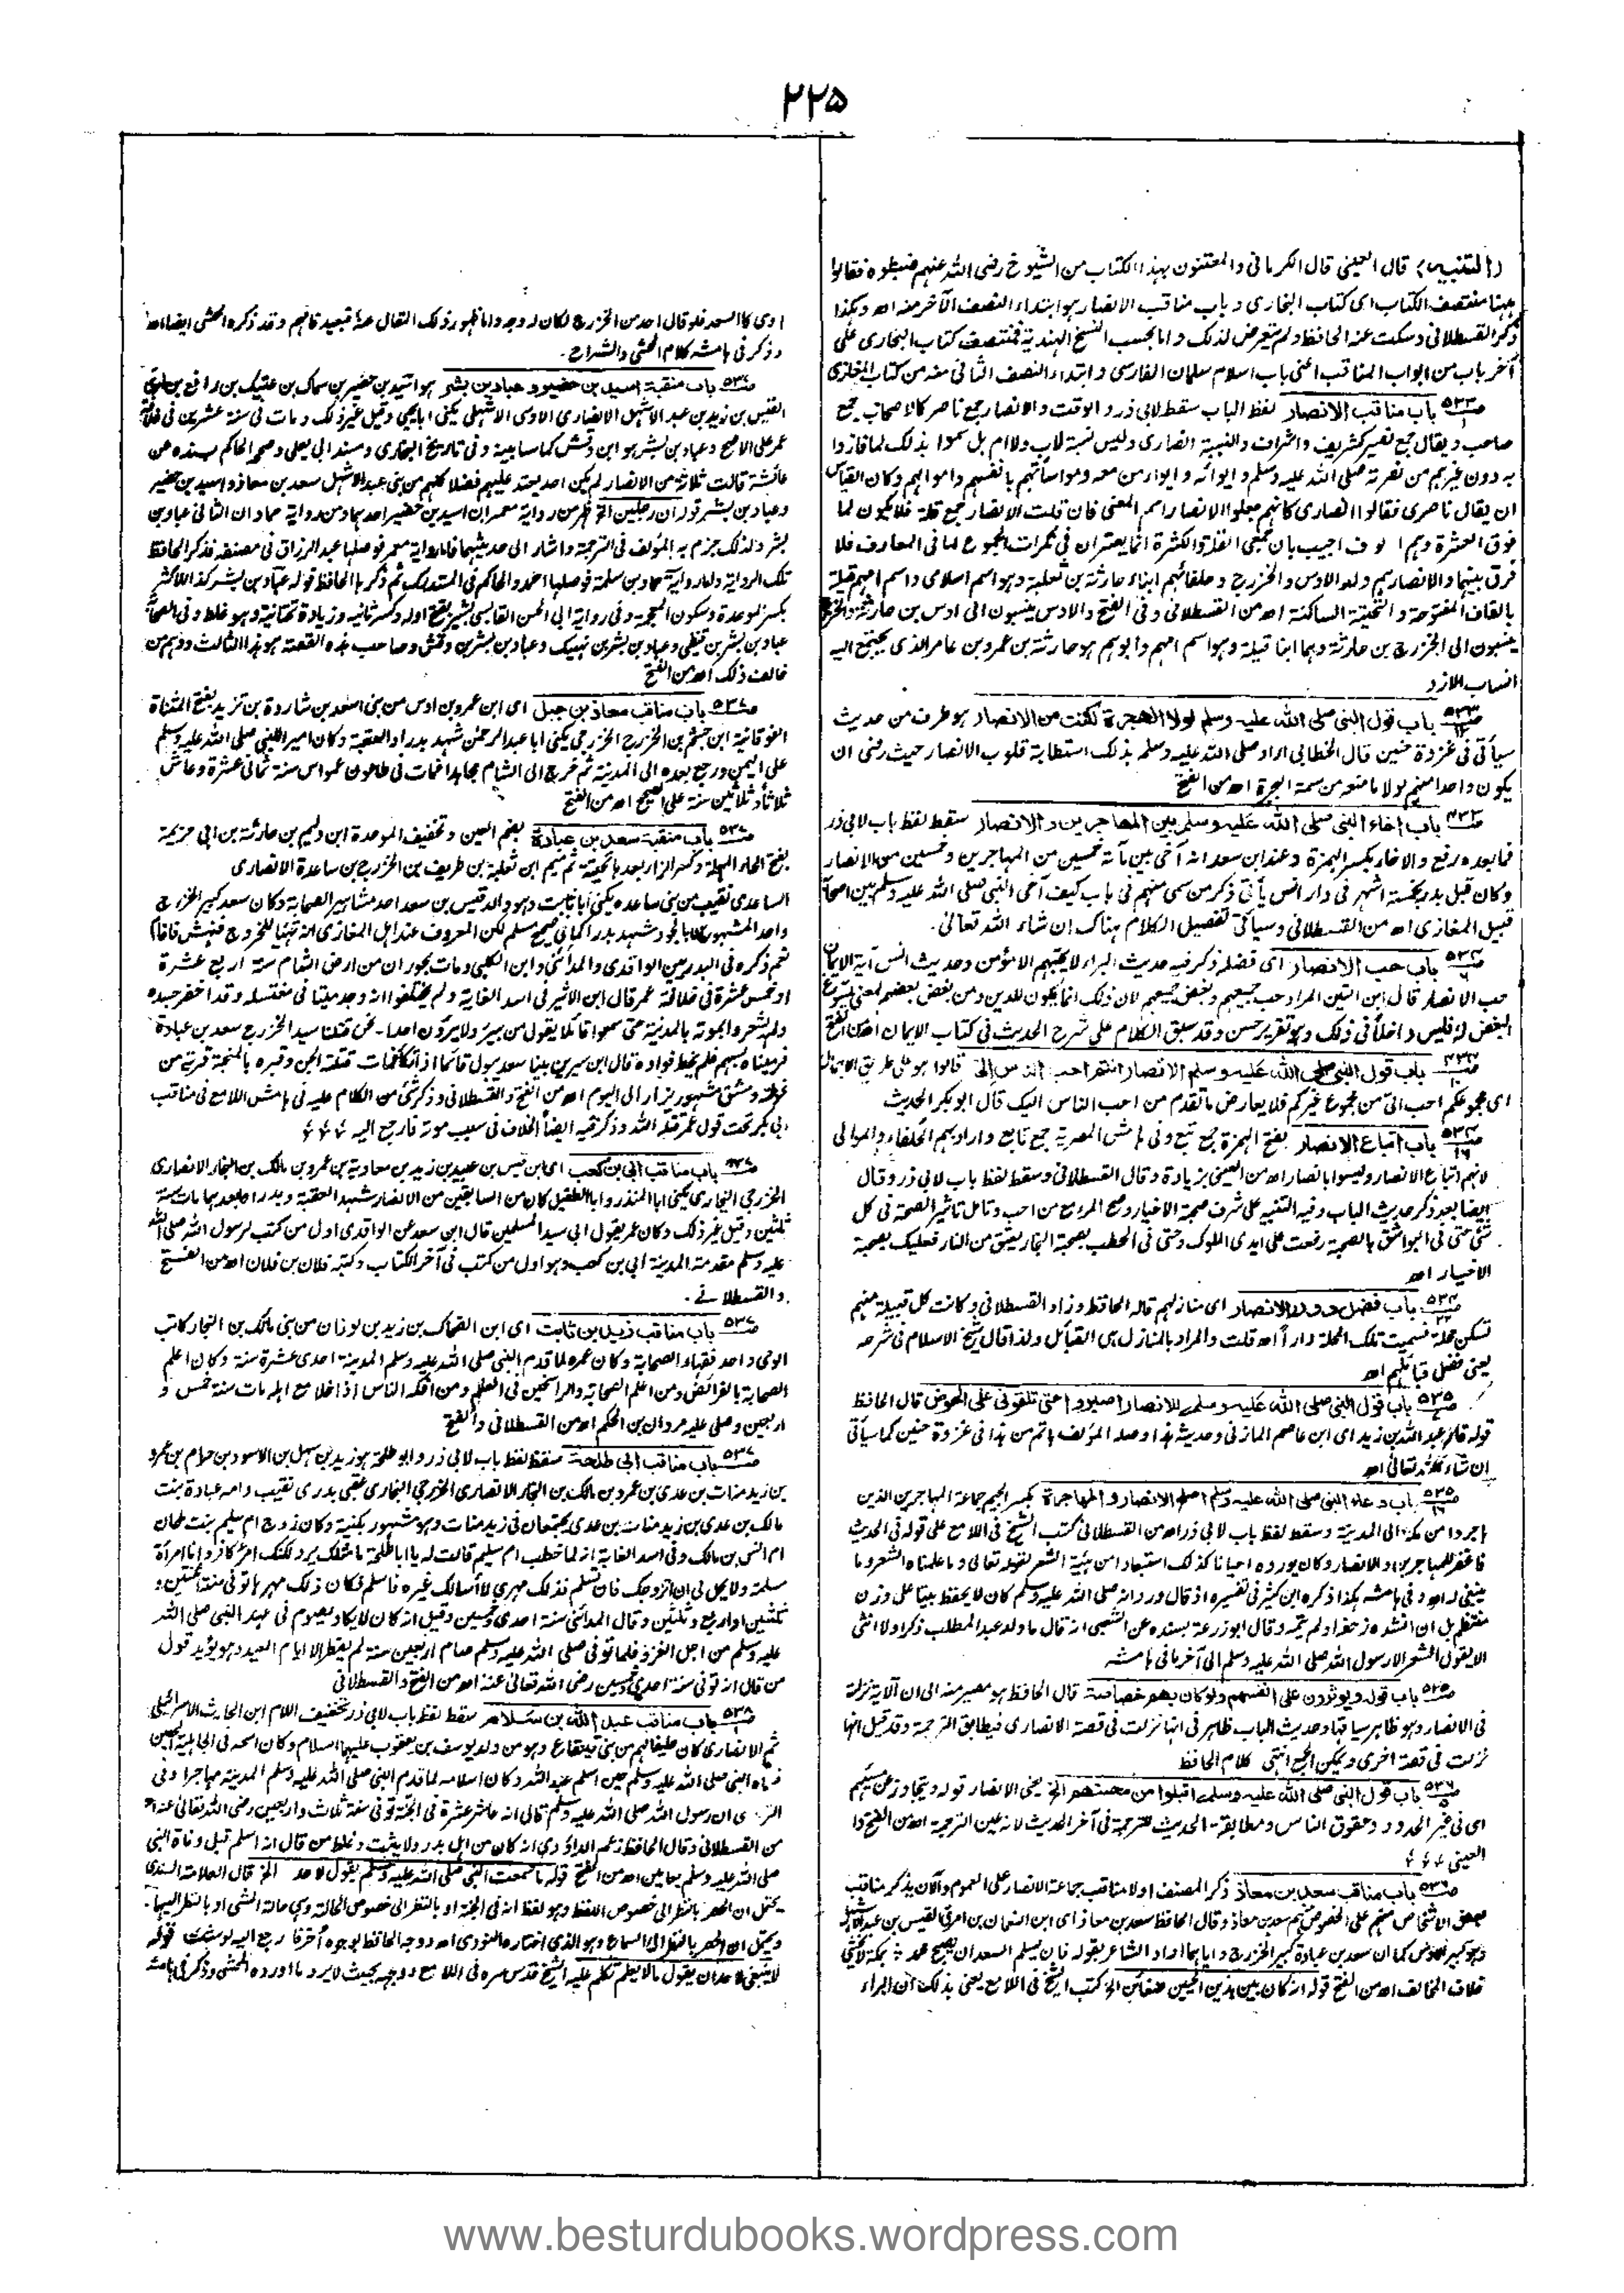 ٢٢٥
(التنبيه) قال العينى قال الكرمانى والمعتنون بهذا الكتاب من الشيوخ رضى الله عنهم ضبطوه فقالوا
ههنا منتصف الكتاب اى كتاب البخارى وباب مناقب الانصار هو ابتداء النصف الآخر منه اھ وهكذا
ذكر القسطلانى وسكت عنه الحافظ ولم يتعرض لذلك واما بحسب النسخ الهندية فمنتصف كتاب البخارى على
آخر باب من ابواب المناقب اعنى باب اسلام سلمان الفارسى وابتداء النصف الثانى منه من كتاب المغازى
باب مناقب الانصار لفظ الباب سقط لابى ذر والوقت والانصار جمع ناصر كالاصحاب جمع
صاحب ويقال جمع نصير كشريف واشراف والنسبة انصارى وليس نسبة لاب ولا ام بل سموا بذلك لما فازوا
به دون غيرهم من نصرته صلى الله عليه وسلم وايوائه وايواء من معه ومواساتهم بانفسهم واموالهم وكان القياس
ان يقال ناصرى فقالوا انصارى كانهم جعلوا الانصار اسم المعنى فان قلت الانصار جمع قلة فلا يكون لما
فوق العشرة وهم الوف اجيب بان جمعى القلة والكثرة انما يعتبران فى نكرات الجموع اما فى المعارف فلا
فرق بينهما والانصار هم ولد الاوس والخزرج وحلفائهم ابناء حارثة بن ثعلبة وهو اسم اسلامى واسم امهم قيلة
بالقاف المفتوحة والتحتية الساكنة اھ من القسطلانى وفى الفتح والاوس ينسبون الى اوس بن حارثة والخزرج
ينسبون الى الخزرج بن حارثة وهما ابنا قيلة وهو اسم امهم وابوهم هو حارثة بن عمرو بن عامر الذى يجتمع اليه
انساب الازد
باب قول النبى صلى الله عليه وسلم لولا الهجرة لكنت من الانصار هو طرف من حديث
سيأتى فى غزوة حنين قال الخطابى اراد صلى الله عليه وسلم بذلك استطابة قلوب الانصار حيث رضى ان
يكون واحدا منهم لولا ما منعه من سمة الهجرة اھ من الفتح
باب اخاء النبى صلى الله عليه وسلم بين المهاجرين والانصار سقط لفظ باب لابى ذر
فما بعده رفع والاخاء بكسر الهمزة وعند ابن سعد انه آخى بين مائة خمسين من المهاجرين وخمسين من الانصار
وكان قبل بدر بخمسة اشهر فى دار انس يأتى ذكر من سمى منهم فى باب كيف آخى النبى صلى الله عليه وسلم بين اصحابه
قبيل المغازى اھ من القسطلانى وسيأتى تفصيل الكلام هناك ان شاء الله تعالى.
باب حب الانصار اى فضله ذكر فيه حديث البراء لا يحبهم الا مؤمن وحديث انس آية الايمان
حب الانصار قال ابن التين المراد حب جميعهم وبغض جميعهم لان ذلك انما يكون للدين ومن بغض بعضهم لمعنى يسوغ
البغض له فليس داخلا فى ذلك وهو تقرير حسن وقد سبق الكلام على شرح الحديث فى كتاب الايمان اھ من الفتح
باب قول النبى صلى الله عليه وسلم الانصار انتم احب الناس الى قالوا هو على طريق الاجمال
اى مجموعكم احب الى من مجموع غيركم فلا يعارض ما تقدم من احب الناس اليك قال ابوبكر الحديث
باب اتباع الانصار بفتح الهمزة جمع تبع وفى هامش المصرية جمع تابع واراد بهم الحلفاء والموالى
لانهم اتباع الانصار وليسوا بانصار اھ من العينى بزيادة وقال القسطلانى وسقط لفظ باب لابى ذر وقال
ايضا بعد ذكر حديث الباب وفيه التنبيه على شرف صحبة الاخيار وصح المرء مع من احب وتامل تاثير الصحبة فى كل
شئ حتى فى البواشق بالصحبة رفعت على ايدى الملوك وحتى فى الحطب بصحبة النجار يعتق من النار فعليك بصحبة
الاخيار اھ
باب فضل دور الانصار اى منازلهم قاله الحافظ وزاد القسطلانى وكانت كل قبيلة منهم
تسكن محلة فسميت تلك المحلة دارا اھ قلت والمراد بالمنازل هى القبائل ولذا قال شيخ الاسلام فى شرحه
يعنى فضل قبائلهم اھ
باب قول النبى صلى الله عليه وسلم للانصار اصبروا حتى تلقونى على الحوض قال الحافظ
قوله قاله عبد الله بن زيد اى ابن عاصم المازنى وحديثه هذا وصله المؤلف باتم من هذا فى غزوة حنين كما سيأتى
ان شاء الله تعالى اھ
باب دعاء النبى صلى الله عليه وسلم اصلح الانصار والمهاجرة بكسر الجيم جماعة المهاجرين الذين
هاجروا من مكة الى المدينة وسقط لفظ باب لابى ذر اھ من القسطلانى كتب الشيخ فى اللامع على قوله فى الحديث
فاغفر للمهاجرين والانصار وكان يورده احيانا كذلك استبعادا من هيئة الشعر لقوله تعالى وما علمناه الشعر وما
ينبغى له اھ وفى هامشه هكذا ذكره ابن كثير فى تفسيره اذ قال ورد انه صلى الله عليه وسلم كان لا يحفظ بيتا على وزن
منتظم بل ان انشده زحفه او لم يتمه وقال ابوزرعة بسنده عن الشعبى انه قال ما ولد عبد المطلب ذكرا ولا انثى
الا يقول الشعر الا رسول الله صلى الله عليه وسلم الى آخر ما فى هامشه
باب قوله ويؤثرون على انفسهم ولو كان بهم خصاصة قال الحافظ هو مصير منه الى ان الآية نزلت
فى الانصار وهو ظاهر سياقها وحديث الباب ظاهر فى انها نزلت فى قصة الانصارى فيطابق الترجمة وقد قيل انها
نزلت فى قصة اخرى ويمكن الجمع انتهى كلام الحافظ
باب قول النبى صلى الله عليه وسلم اقبلوا من محسنهم الخ يعنى الانصار قوله ويتجاوز عن مسيئهم
اى فى غير الحدود وحقوق الناس ومطابقة الحديث للترجمة فى آخر الحديث لانه عين الترجمة اھ من الفتح و
العينى
باب مناقب سعد بن معاذ ذكر المصنف اولا مناقب جماعة الانصار على العموم والآن يذكر مناقب
بعض الاشخاص منهم على الخصوص منهم سعد بن معاذ وقال الحافظ سعد بن معاذ اى ابن النعمان بن امرئ القيس بن عبد الاشهل
وهو كبير الاوس كما ان سعد بن عبادة كبير الخزرج واياهما اراد الشاعر بقوله فان يسلم السعدان يصبح محمد بمكة لا يخشى
خلاف المخالف اھ من الفتح قوله انه كان بين هذين الحيين ضغائن الخ كتب الشيخ فى اللامع يعنى بذلك ان البراء
اوى كالسعد فلو قال احد من الخزرج لكان له وجه واما ظهور ذلك القال عنه فبعيد فافهم وقد ذكره المحشى ايضا اھ
وذكر فى هامشه كلام المحشى والشراح.
باب منقبة اسيد بن حضير وعباد بن بشر هو اسيد بن حضير بن سماك بن عتيك بن رافع بن امرئ
القيس بن زيد بن عبد الاشهل الانصارى الاوسى الاشهلى يكنى ابا يحيى وقيل غير ذلك ومات فى سنة عشرين فى خلافة
عمر على الاصح وعباد بن بشر هو ابن وقش كما سابينه وفى تاريخ البخارى ومسند ابى يعلى وصححه الحاكم بسنده عن
عائشة قالت ثلاثة من الانصار لم يكن احد يعتد عليهم فضلا كلهم من بنى عبد الاشهل سعد بن معاذ واسيد بن حضير
وعباد بن بشر قوله ان رجلين الخ ظهر من رواية معمر ان اسيد بن حضير احدهما ومن رواية حماد ان الثانى عباد بن
بشر ولذلك جزم به المؤلف فى الترجمة واشار الى حديثهما فاما رواية معمر فوصلها عبد الرزاق فى مصنفه فذكر الحافظ
تلك الرواية واما رواية حماد بن سلمة فوصلها احمد والحاكم فى المستدرك ثم ذكرها الحافظ قوله عباد بن بشر كذا للاكثر
بكسر الموحدة وسكون المعجمة وفى رواية ابى الحسن القابسى بشير بفتح اوله وكسر ثانيه وزيادة تحتانية وهو غلط وفى الصحابة
عباد بن بشر بن قيظى وعباد بن بشر بن نهيك وعباد بن بشر بن وقش وصاحب هذه القصة هو هذا الثالث ووهم من
خالف ذلك اھ من الفتح
باب مناقب معاذ بن جبل اى ابن عمرو بن اوس من بنى اسعد بن شاردة بن تزيد بفتح المثناة
الفوقانية ابن جشم بن الخزرج الخزرجى يكنى ابا عبد الرحمن شهد بدرا والعقبة وكان امير اللنبى صلى الله عليه وسلم
على اليمن ورجع بعده الى المدينة ثم خرج الى الشام مجاهدا فمات فى طاعون عمواس سنة ثمانى عشرة وعاش
ثلاثا وثلاثين سنة على الصحيح اھ من الفتح
باب منقبة سعد بن عبادة بضم العين وتخفيف الموحدة ابن دليم بن حارثة بن ابى حزيمة
بفتح الحاء المهملة وكسر الزاء بعدها تحتية ثم ميم ابن ثعلبة بن طريف بن الخزرج بن ساعدة الانصارى
الساعدى نقيب من بنى ساعده يكنى ابا ثابت وهو والد قيس بن سعد احد مشاهير الصحابة وكان سعد كبير الخزرج
واحد المشهورين بالجود وشهد بدرا كما فى صحيح مسلم لكن المعروف عند اهل المغازى انه تهيأ للخروج فنهش فاقام
نعم ذكره فى البدريين الواقدى والمدائنى وابن الكلبى ومات بحوران من ارض الشام سنة اربع عشرة
او خمس عشرة فى خلافة عمر قال ابن الاثير فى اسد الغابة ولم يختلفوا انه وجد ميتا فى مغتسله وقد اخضر جسده
ولم يشعروا بموته بالمدينة حتى سمعوا قائلا يقول من بئر ولا يرون احدا ـ نحن قتلنا سيد الخزرج سعد بن عبادة
فرميناه بسهم فلم يخط فواده قال ابن سيرين بينا سعد يبول قائما اذ اتكأ فمات قتلته الجن وقبره بالمنيحة قرية من
غوطة دمشق مشهور يزار الى اليوم اھ من الفتح والقسطلانى وذكر شئ من الكلام عليه فى هامش اللامع فى مناقب
ابى بكر تحت قول عمر قتله الله وذكر فيه ايضا الخلاف فى سبب موته فارجع اليه
باب مناقب ابى بن كعب اى ابن قيس بن عبيد بن زيد بن معاوية بن عمرو بن مالك بن النجار الانصارى
الخزرجى النجارى يكنى ابا المنذر وابا الطفيل كان من السابقين من الانصار شهد العقبة وبدرا وما بعدهما مات سنة
ثلثين وقيل غير ذلك وكان عمر يقول ابى سيد المسلمين قال ابن سعد عن الواقدى اول من كتب لرسول الله صلى الله
عليه وسلم مقدمه المدينة ابى بن كعب وهو اول من كتب فى آخر الكتاب وكتبه فلان بن فلان اھ من الفتح
والقسطلانى.
باب مناقب زيد بن ثابت اى ابن الضحاك بن زيد بن لوذان من بنى مالك بن النجار كاتب
الوحى واحد فقهاء الصحابة وكان عمره لما قدم النبى صلى الله عليه وسلم المدينة احدى عشرة سنة وكان اعلم
الصحابة بالفرائض ومن اعلم الصحابة والراسخين فى العلم ومن افكه الناس اذا خلا مع اهله مات سنة خمس و
اربعين وصلى عليه مروان بن الحكم اھ من القسطلانى والفتح
باب مناقب ابى طلحة سقط لفظ باب لابى ذر وابو طلحة هو زيد بن سهل بن الاسود بن حرام بن عمرو
بن زيد مناة بن عدى بن عمرو بن مالك بن النجار الانصارى الخزرجى النجارى عقبى بدرى نقيب وامه عبادة بنت
مالك بن عدى بن زيد مناة بن عدى يجتمعان فى زيد مناة وهو مشهور بكنيته وكان زوج ام سليم بنت ملحان
ام انس بن مالك وفى اسد الغابة انه لما خطب ام سليم قالت له يا ابا طلحة ما مثلك يرد لكنك امرؤ كافر وانا امرأة
مسلمة ولا يحل لى ان اتزوجك فان تسلم فذلك مهرى لا اسألك غيره فاسلم فكان ذلك مهرها توفى سنة اثنتين و
ثلثين او اربع وثلثين وقال المدائنى سنة احدى وخمسين وقيل انه كان لا يكاد يصوم فى عهد النبى صلى الله
عليه وسلم من اجل الغزو فلما توفى صلى الله عليه وسلم صام اربعين سنة لم يفطر الا ايام العيد وهو يؤيد قول
من قال انه توفى سنة احدى وخمسين رضى الله تعالى عنه اھ من الفتح والقسطلانى
باب مناقب عبد الله بن سلام سقط لفظ باب لابى ذر بتخفيف اللام ابن الحارث الاسرائيلى
ثم الانصارى كان حليفا لهم من بنى قينقاع وهو من ولد يوسف بن يعقوب عليهما السلام وكان اسمه فى الجاهلية الحصين
فسماه النبى صلى الله عليه وسلم حين اسلم عبد الله وكان اسلامه لما قدم النبى صلى الله عليه وسلم المدينة مهاجرا وفى
ان رسول الله صلى الله عليه وسلم قال انه عاشر عشرة فى الجنة توفى سنة ثلاث واربعين رضى الله تعالى عنه اھ
من القسطلانى وقال الحافظ زعم الداؤدى انه كان من اهل بدر ولا يثبت وغلط من قال انه اسلم قبل وفاة النبى
صلى الله عليه وسلم بعامين اھ من الفتح قوله ما سمعت النبى صلى الله عليه وسلم يقول لاحد الخ قال العلامة السندى
يحتمل ان الحصر بالنظر الى خصوص اللفظ وهو لفظ انه فى الجنة او بالنظر الى خصوص الحالة وهى حالة المشى او بالنظر اليهما.
ويحتمل ان الحصر بالنظر الى السماع وهو الذى اختاره النووى اھ ووجه الحافظ بوجوه أخر فارجع اليه لو شئت قوله
لا ينبغى لاحد ان يقول ما لا يعلم تكلم عليه الشيخ قدس سره فى اللامع ووجهه بحيث لا يرد ما اورده المحشى وذكر فى هامشه
www.besturdubooks.wordpress.com